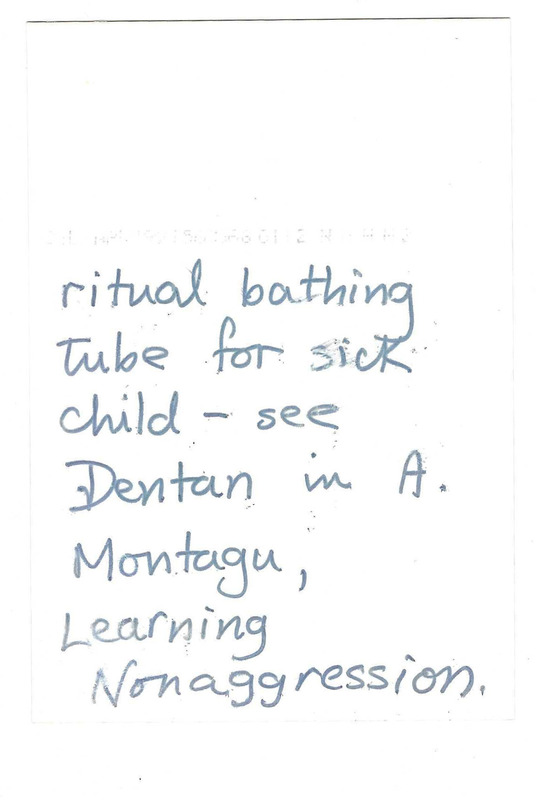 ritual bathing
tube for sick
child – see
Dentan in A.
Montagu,
Learning
Nonaggression.